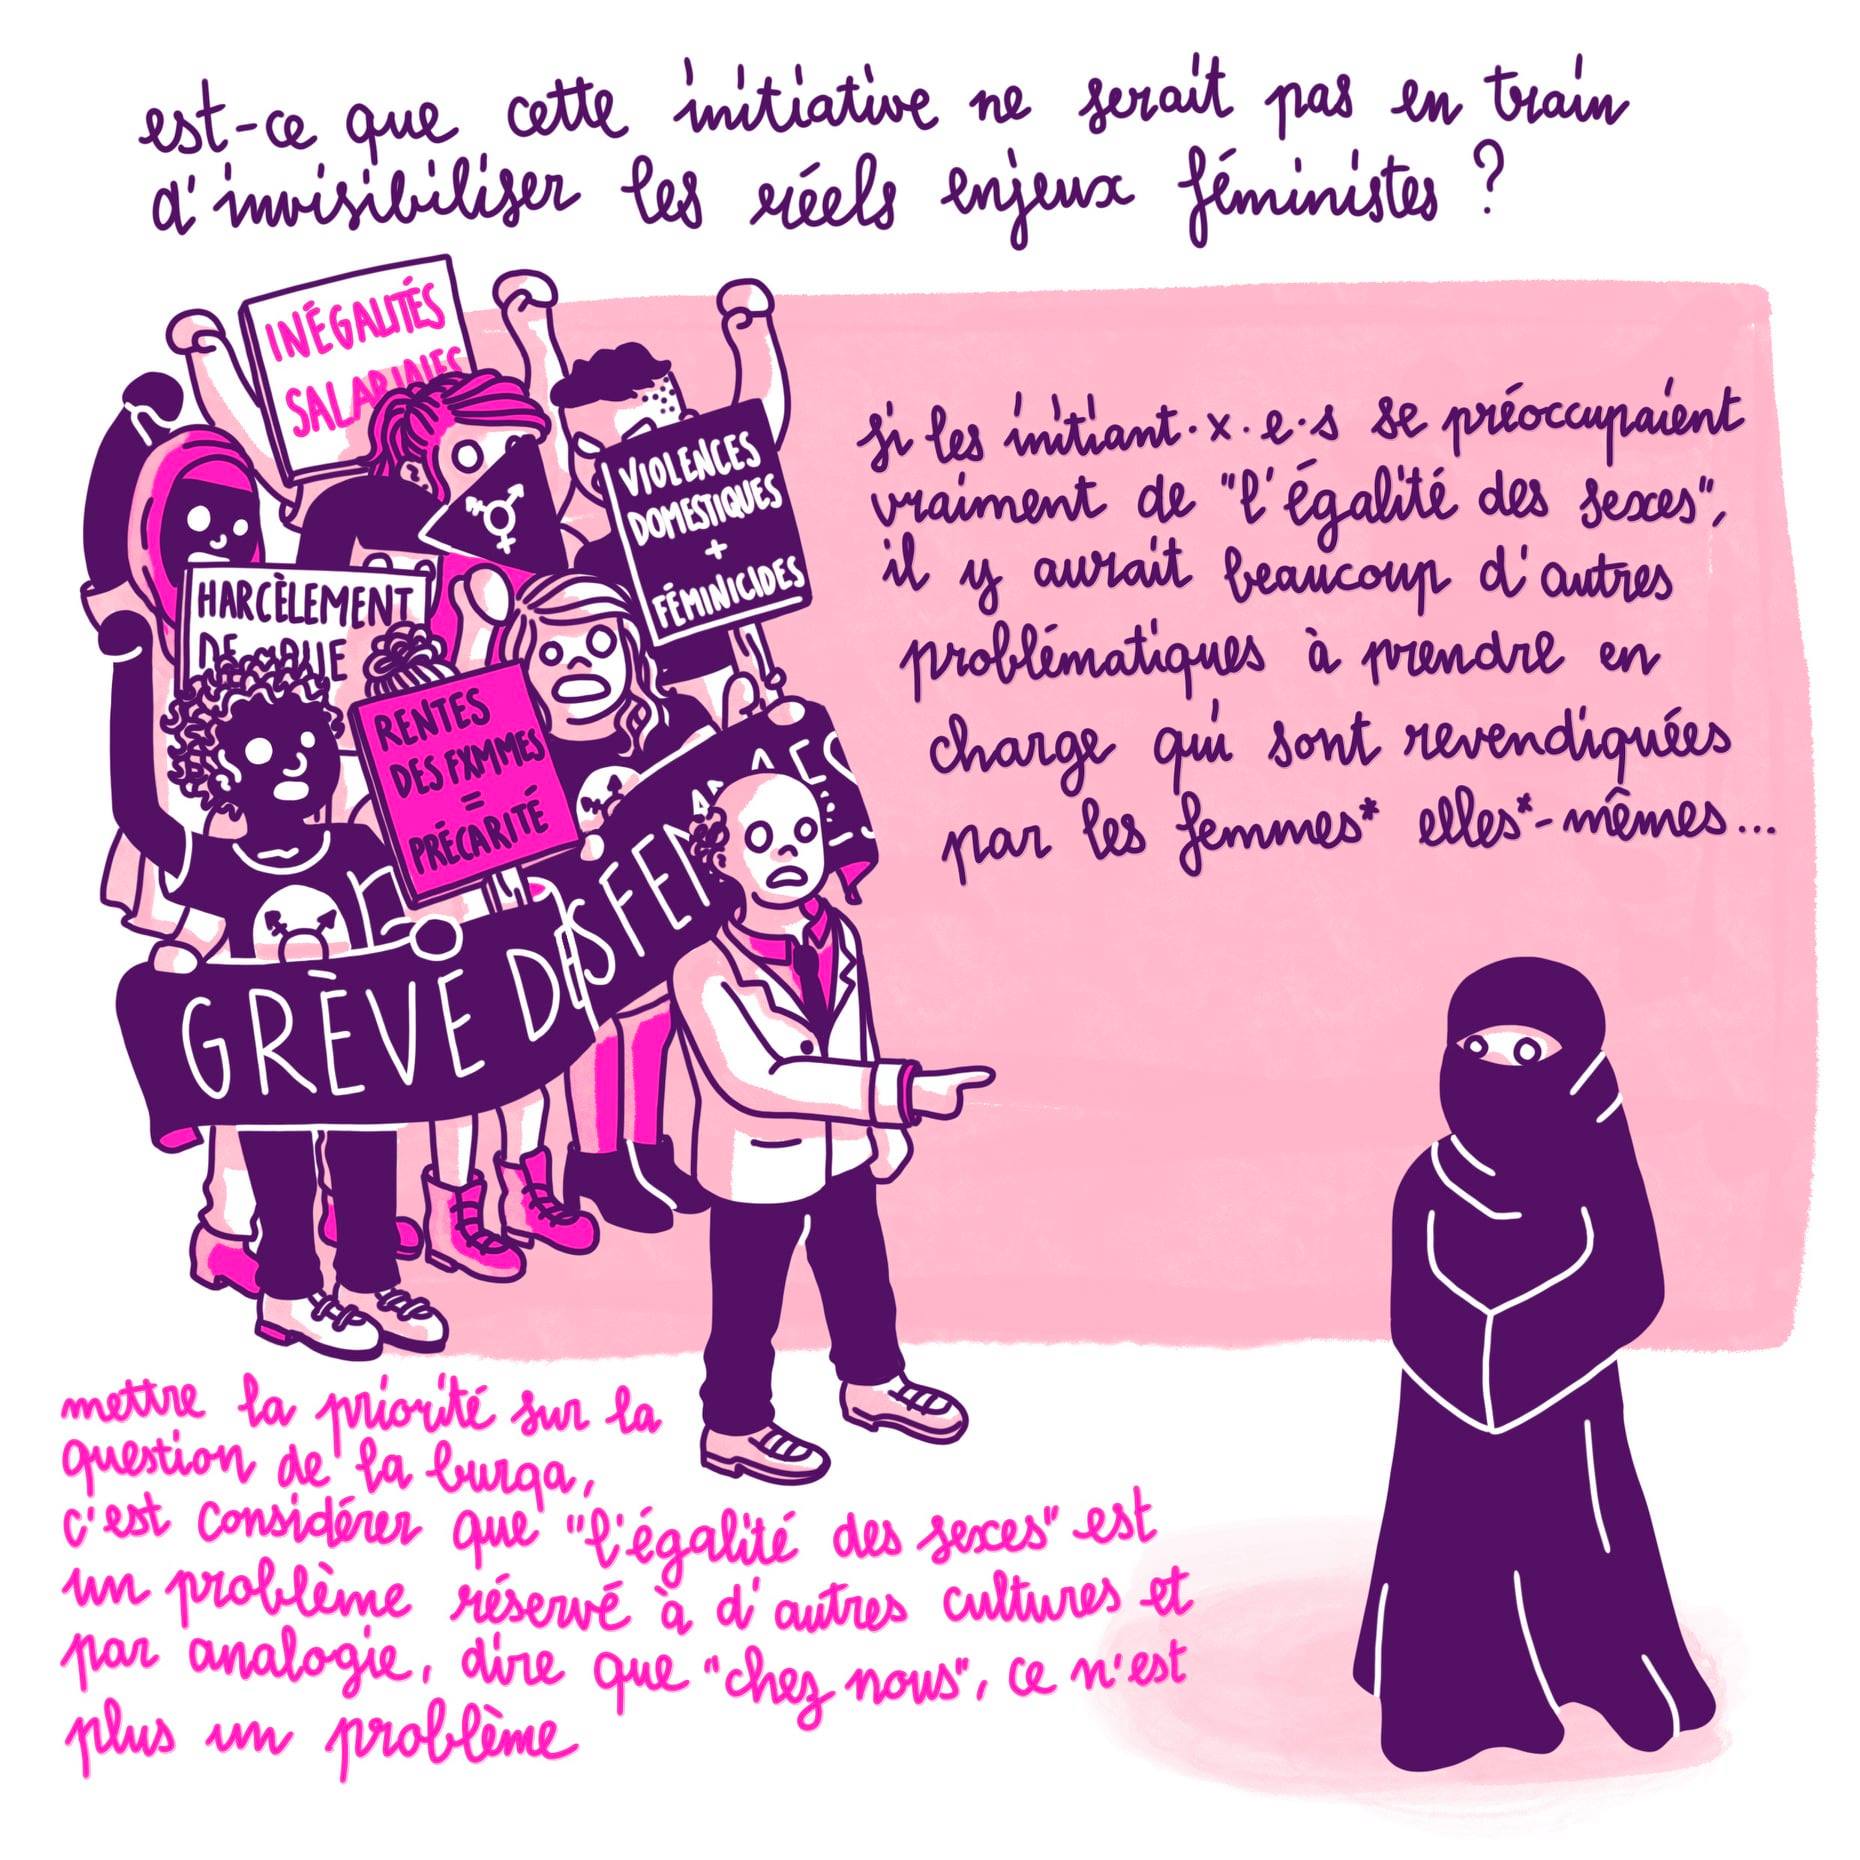 est-ce que cette initiative ne serait pas en train
d'invisibiliser les réels enjeux féministes ?
INÉGALITÉS
SALARIALES
VIOLENCES
DOMESTIQUES
+
FÉMINICIDES
HARCÈLEMENT
DE RUE
RENTES
DES FXMMES
=
PRÉCARITÉ
GRÈVE DES FEMMES
si les initiant·x·e·s se préoccupaient
vraiment de "l'égalité des sexes",
il y aurait beaucoup d'autres
problématiques à prendre en
charge qui sont revendiquées
par les femmes* elles*-mêmes...
mettre la priorité sur la
question de la burqa,
c'est considérer que "l'égalité des sexes" est
un problème réservé à d'autres cultures et
par analogie, dire que "chez nous", ce n'est
plus un problème